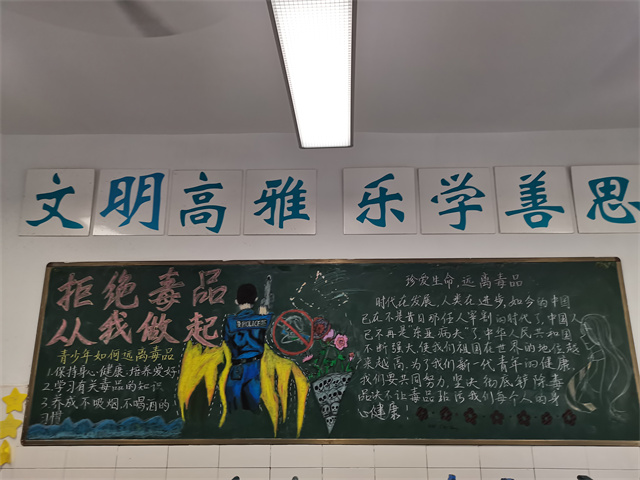 文明高雅 乐学善思
拒绝毒品
从我做起
青少年如何远离毒品
1.保持身心健康,培养爱好
2.学习有关毒品的知识
3.养成不吸烟、不喝酒的
习惯
POLICE
珍爱生命,远离毒品
时代在发展,人类在进步,如今的中国
已在不是昔日那任人宰割的时代了,中国人
已不再是“东亚病夫”了,中华人民共和国
不断强大,使我们祖国在世界的地位越
来越高,为了我们新一代青年的健康,
我们要共同努力,坚决彻底转除毒
品,决不让毒品祸害我们每个人的身
心健康!